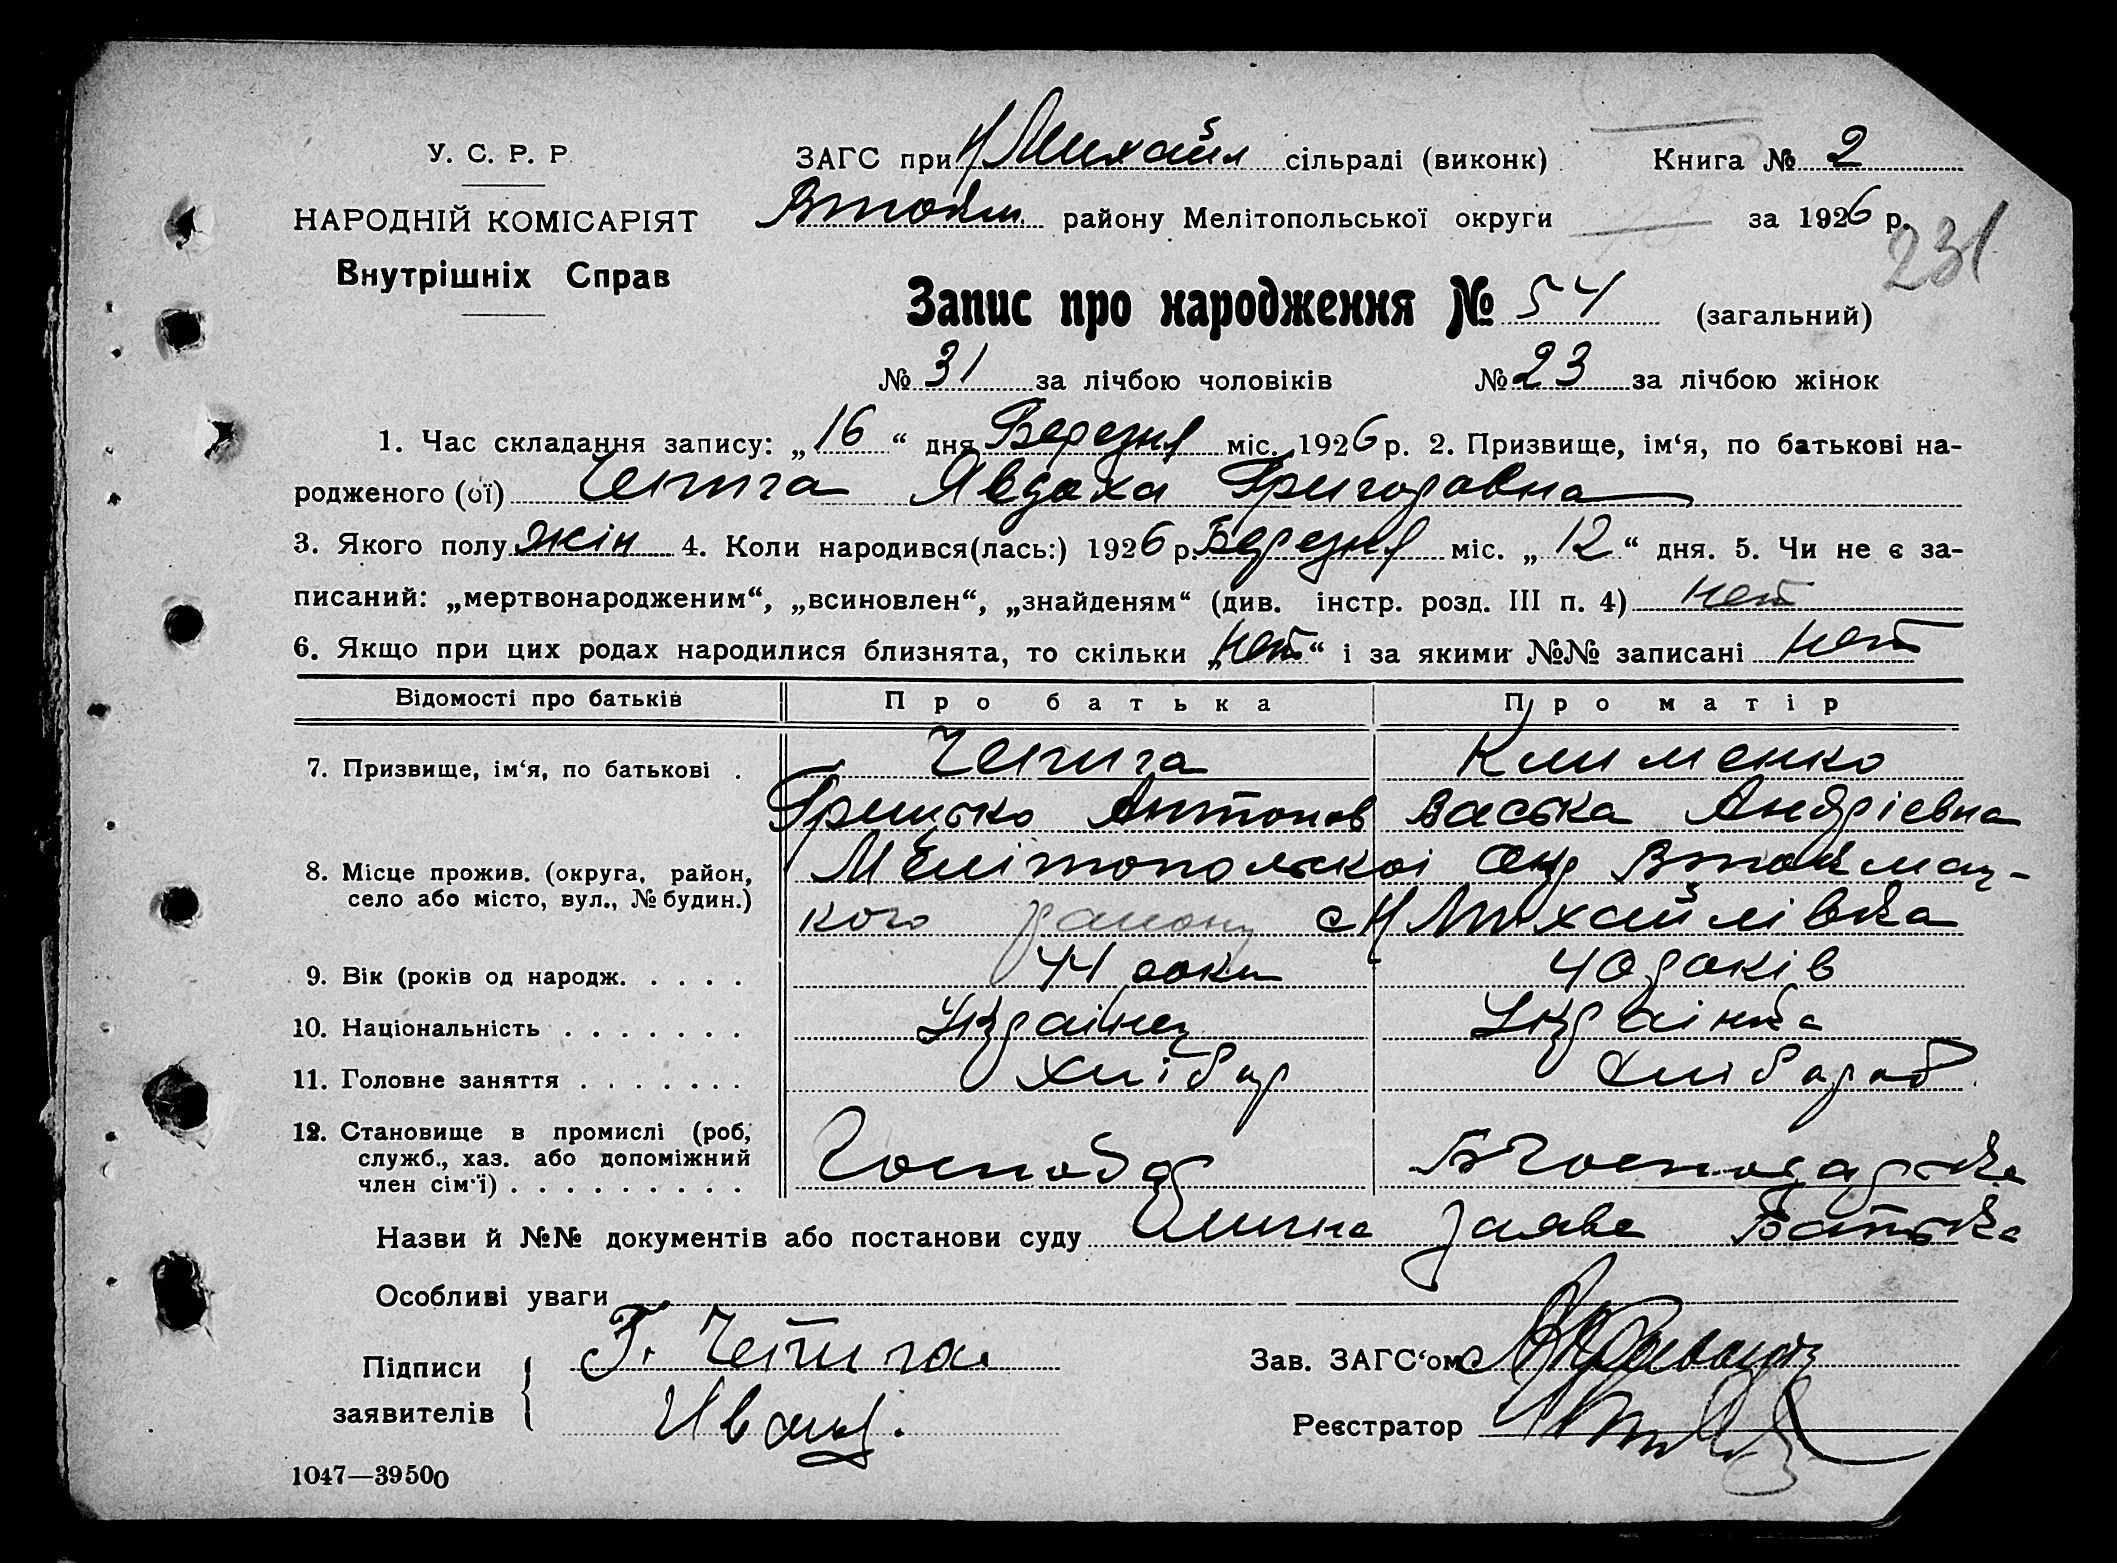 У. С. Р. Р.
НАРОДНІЙ КОМІСАРІЯТ
Внутрішніх Справ
ЗАГС при Н Михайл сільраді (виконк) Книга № 2
району Мелітопольської округи за 1926 р.
231
Запис про народження № 54 (загальний)
№ 31 за лічбою чоловіків № 23 за лічбою жінок
1. Час складання запису: „16“ дня Березня міс. 1926 р. 2. Призвище, ім‘я, по батькові на-
родженого (ої) Чепига Явдоха Григоровна
3. Якого полу жін 4. Коли народився(лась:) 1926 р. Березня міс. „12“ дня. 5. Чи не є за-
писаний: „мертвонародженим“, „всиновлен“, „знайденям“ (див. інстр. розд. III п. 4) нет
6. Якщо при цих родах народилися близнята, то скільки „нет“ і за якими №№ записані нет
Відомості про батьків Про батька Про матір
7. Призвище, ім‘я, по батькові . Чепига Клименко
Грицько Антонов Васька Андрієвна
8. Місце прожив. (округа, район, село або місто, вул., № будин.) Мелітопольскоі окр
кого району с Н Михайлівка
9. Вік (років од народж. . . . . 44 роки 40 років
10. Національність . . . . . . . Украінец Украінка
11. Головне заняття . . . . . . . Хлібор Хлібороб
12. Становище в промислі (роб, служб., хаз. або допоміжний член сім‘ї) . . . . . . . . . Господар Господарка
Назви й №№ документів або постанови суду Лична заява Батька
Особливі уваги
Підписи заявителів Г. Чепига
Зав. ЗАГС‘ом
Реєстратор
1047—39500